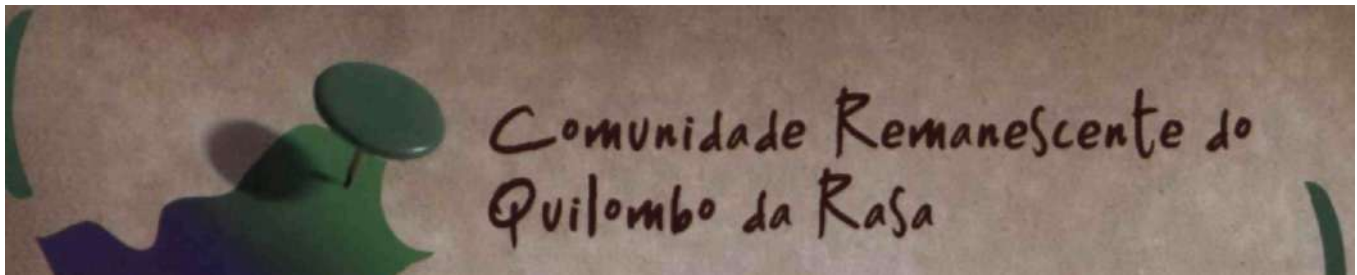 Comunidade Remanescente do
Quilombo da Rasa